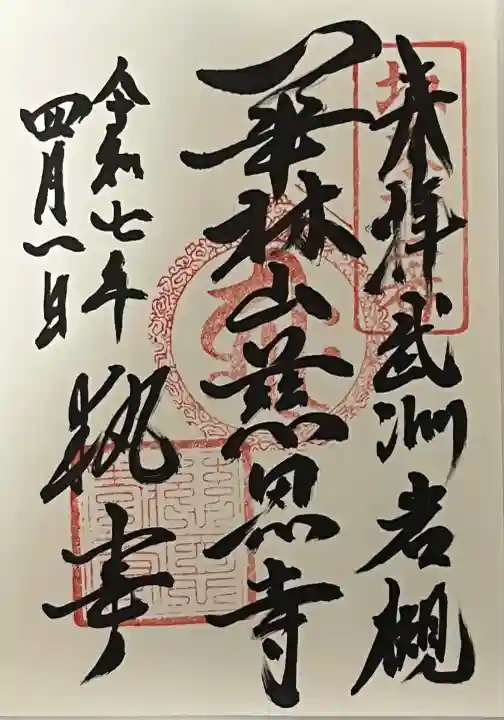 奉拝 武州岩槻
華林山慈恩寺
令和七年
四月一日
執事